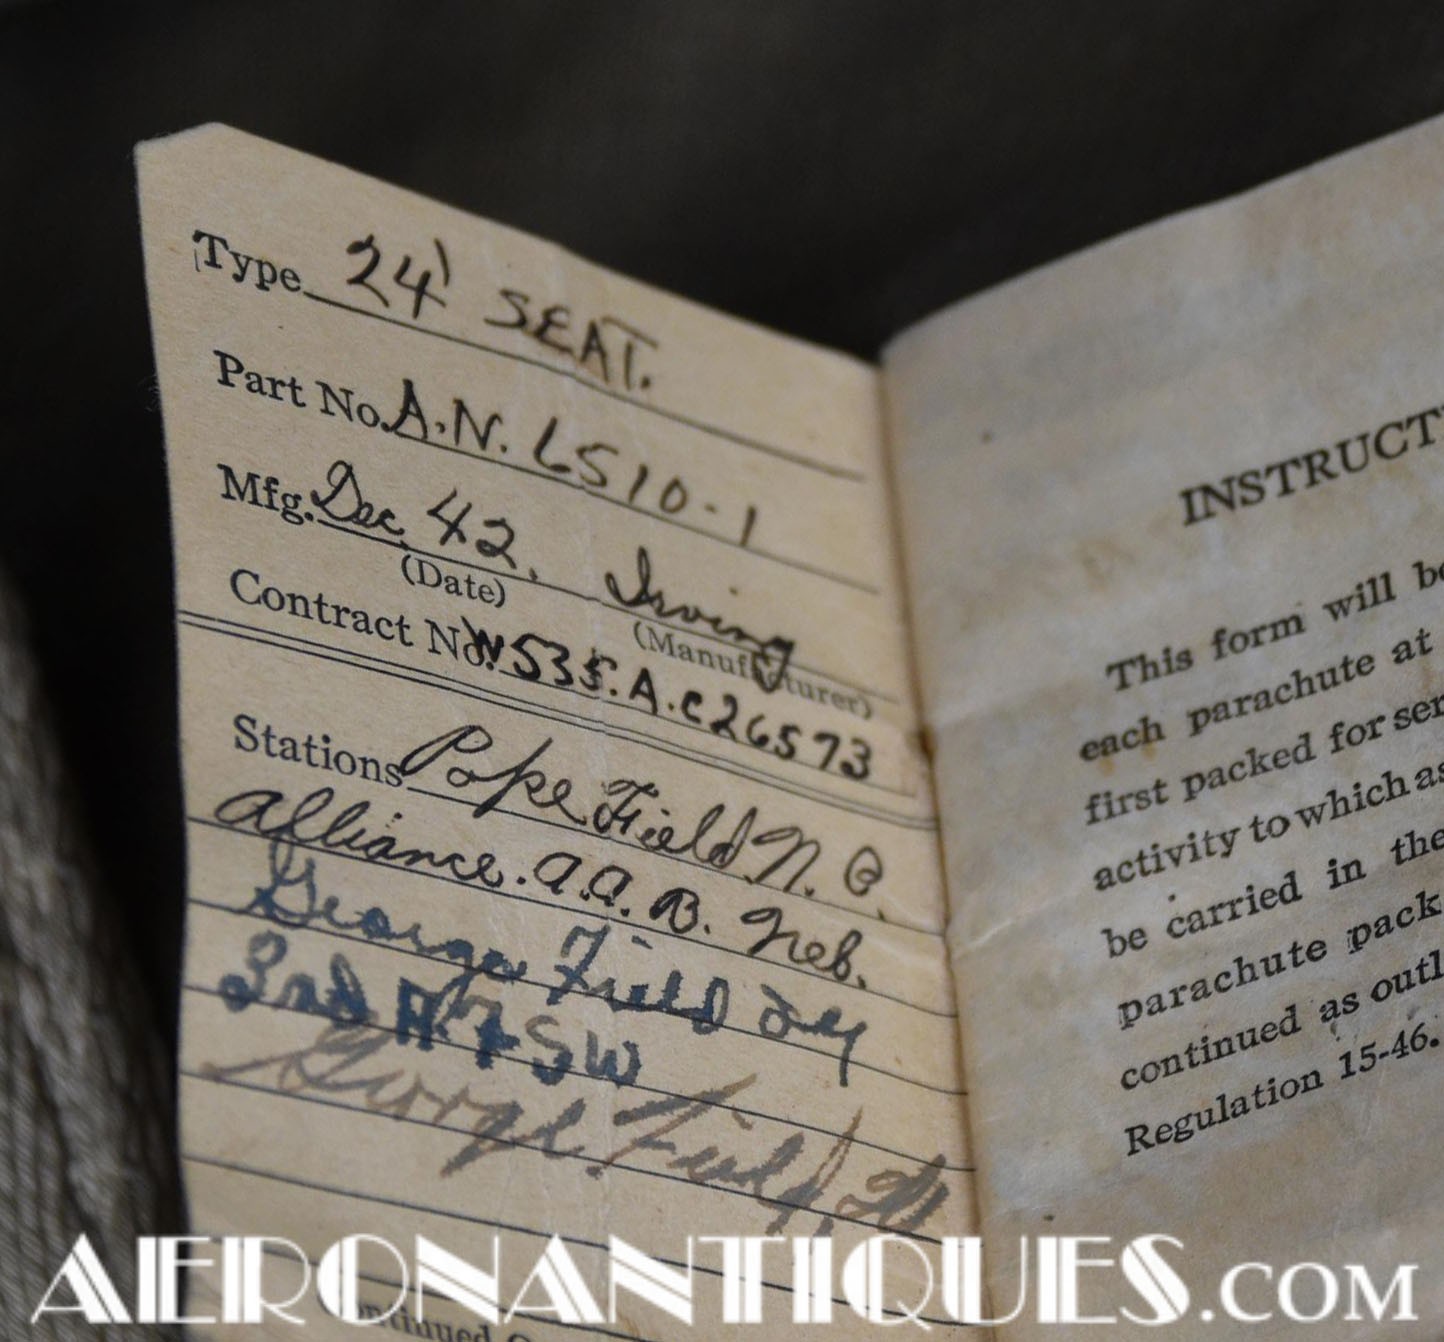 Type 24' SEAT.
Part No. A.N. 6510-1
Mfg. Dec 42, Irving
(Date) (Manufacturer)
Contract No. W535.A.C26573
Stations Pope Field N. C.
Alliance. A.A.B. Neb.
George Field Ill
3rd A.F SW
George Field, Ill
INSTRUCT
This form will b
each parachute at
first packed for ser
activity to which as
be carried in the
parachute pack
continued as outl
Regulation 15-46.
AERONANTIQUES.COM